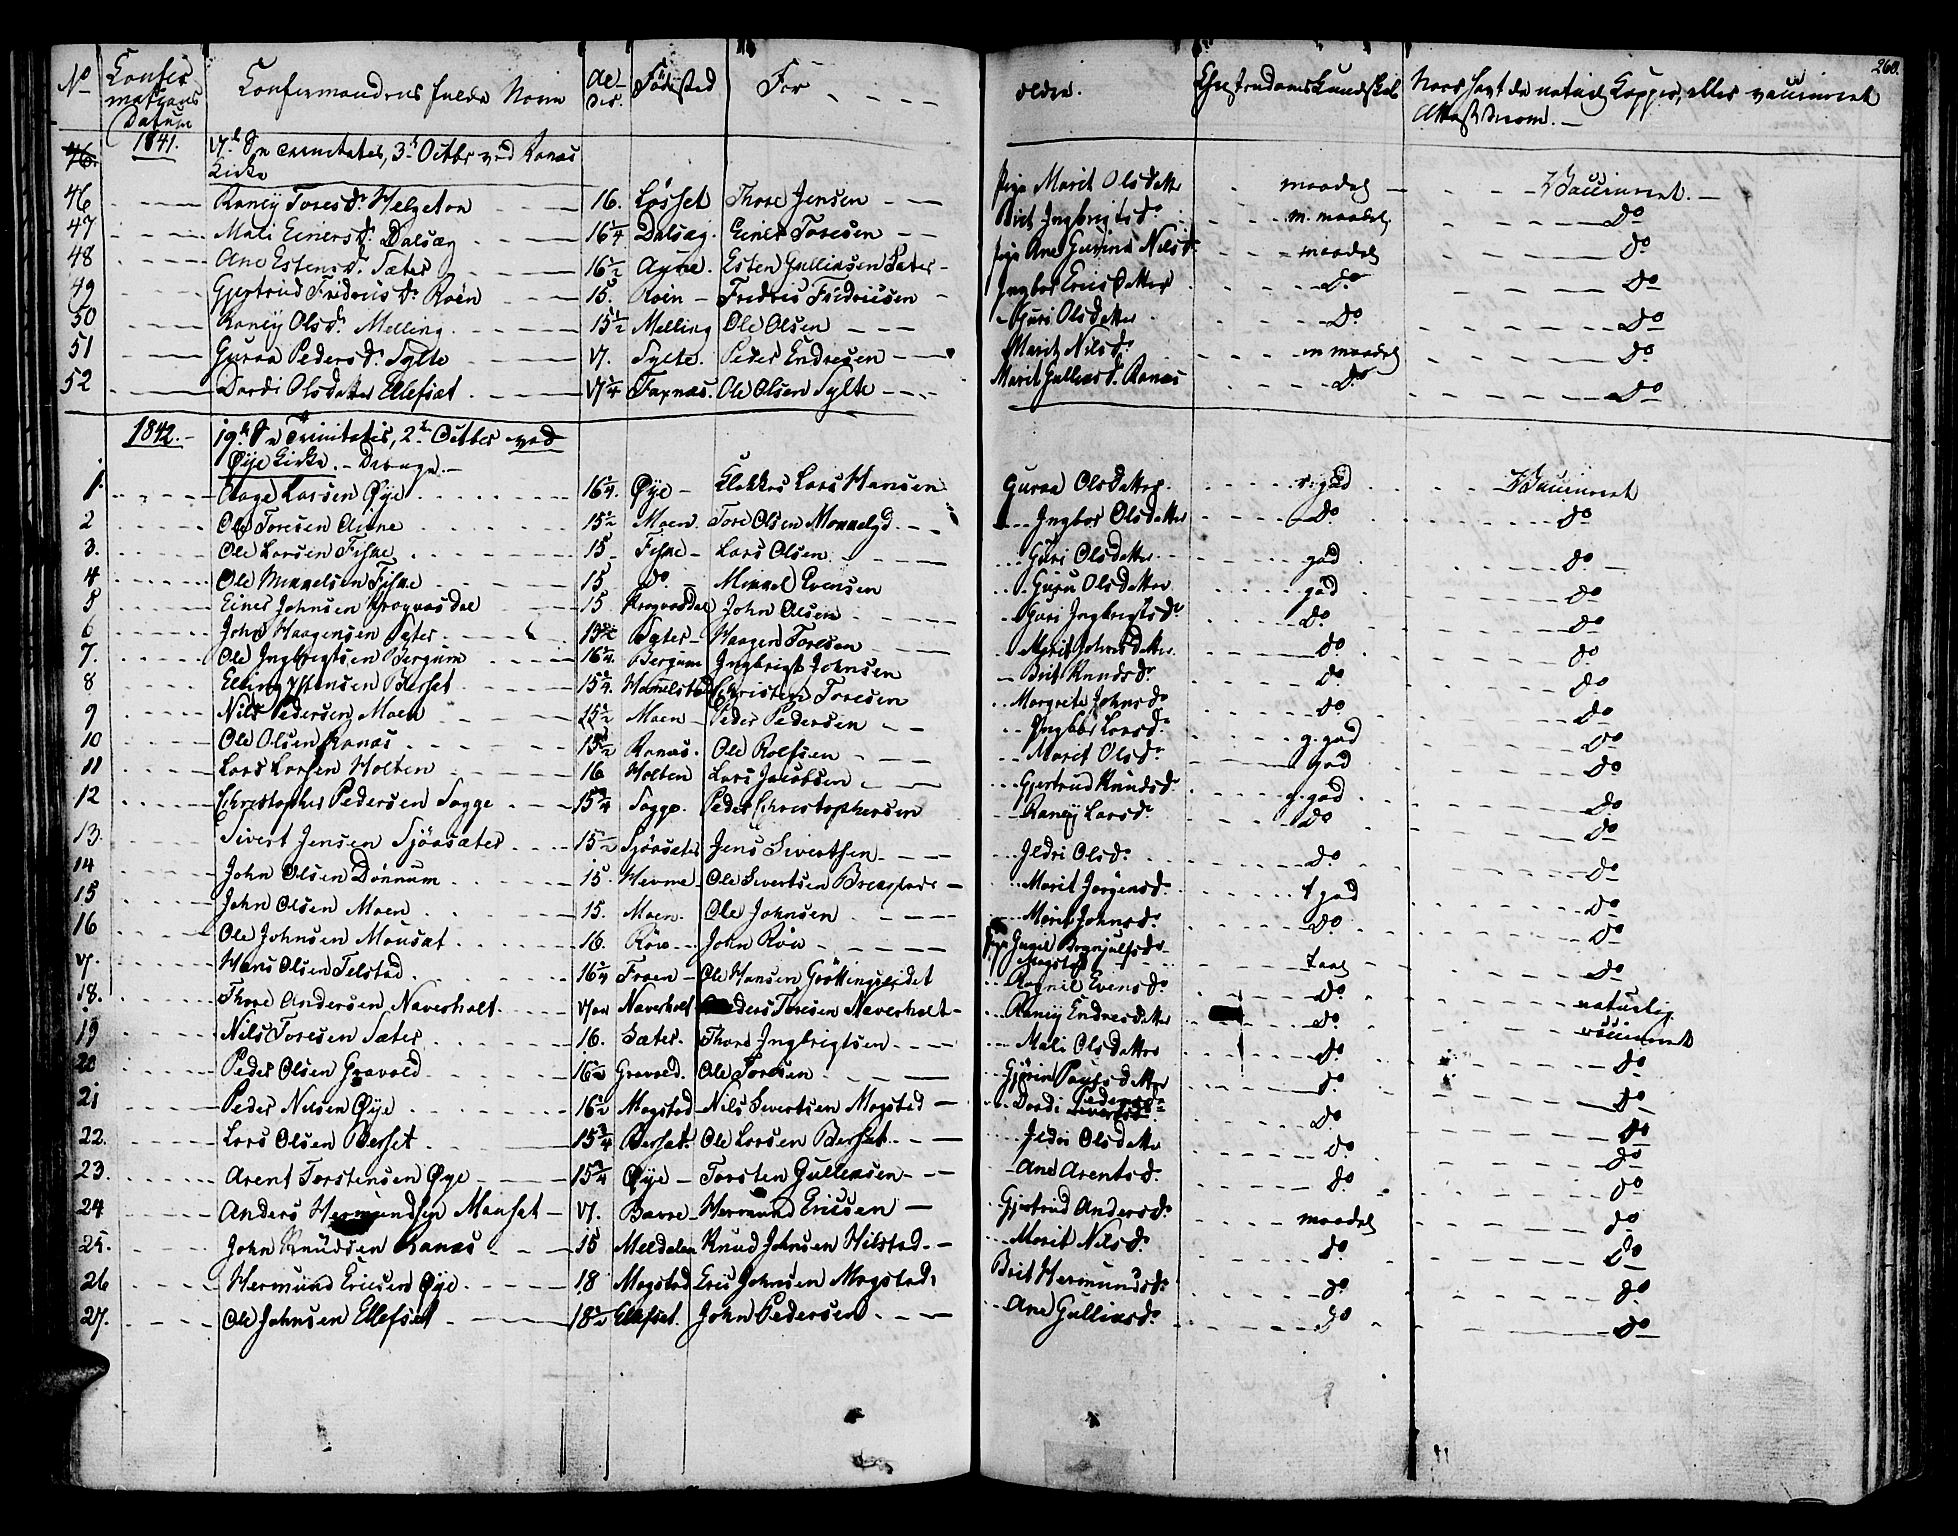 268.
No Confirmations Datum Confirmandens fulde Navn Alder. Fødested For ældre. Christendoms Kundskab Naar havt de naturl. Kopper, eller vaccineret Attest derom.
1841. 17de S. e. Trinitatis, 3die Octbr ved Ranæs
Kirke
46 Raney Toresdr Helgeton 16. Løsset Thore Jensen Pige Marit Olsdatter maadel. Vaccineret.
47 Mali Einersdr Dalsæg 16¼ Dalsæg. Einer Toresen Brit Ingbrigtsdr m. maadel. do
48 Ane Estensdr Sæter 16½ Aune. Esten Gulliksen Sæter Pige Ane Gurina Nilsdr maadel do
49 Gjertrud Fredriksdr Roén 15. Roén Fredrik Fredriksen Ingbor Ericsdatter do do
50 Raney Olsdr Melling 15½ Melling Ole Olsen Guri Olsdatter do do
51 Guraa Pedersdr Sylte 17. Sylte. Peder Endresen Marit Nilsdr m maadel do
52 Dordi Olsdatter Ellefsæt 17¼ Farnæs. Ole Olsen Sylte Marit Gulliksdr Ranæs do do
1842. 19de S. e. Trinitatis, 2den Octbr ved
Øye Kirke. - Drenge.
1. Aage Larsen Øye 16¼. Øye Klokker Lars Hansen Guraa Olsdatter. s. god Vaccineret
2 Ole Toresen Aune 15½ Moen. Tore Olsen Ingbor Olsdatter do do
3. Ole Larsen Fiske 15 Fiske Lars Olsen Guri Olsdatter god do
4 Ole Mikkelsen Fiske 15 do Mikkel Evensen Guru Olsdatter god do
5 Einer Johnsen Krogvasdal 15. Krogvasdal John Olsen Guri Ingbrigtsdr do do
6 John Haagensen Sæter Sæter Haagen Toresen Marit Johnsdatter do do
7. Ole Ingbrigtsen Bergum 16¼. Bergum Ingbrigt Johnsen Brit Knudsdr do do
8 Elling Berset 15¼. Hammelstad Christen Toresen Margrete Johnsdr do do
9 Nils Pedersen Moen 15½ Moen Peder Pedersen Ingbor Larsdr g. god do
10 Ole Olsen Ranæs 15½ Ranæs. Ole Rolfsen Marit Olsdr god do
11 Lars Larsen Holten 16 Holten Lars Jacobsen Gjertrud Knudsdr g. god do
12 Christopher Pedersen Togge 15¾ Togge. Peder Christophersen Raney Larsdr do do
13. Sivert Jensen Sjöasæter 15½ Sjöasæter Jens Sivertsen Ildri Olsdr do do
14 John Olsen Dønnum 15. Hevne Ole Sivertsen Marit Jørgensdr t god do
15 John Olsen Moen 15. Moen. Ole Johnsen Marit Johnsdr do do
16 Ole Johnsen Mauset 16. Röw John Röw Pige Ingel Bognjulfsdr
Mogstad taal do
17. Hans Olsen Telstad 16¼ Froen Ole Hansen Gröttingslidet Ragnil Evensdr do naturlig
18. Thore Andersen Naverholt Naverholt Anders Toresen Naverholt Raney Endresdatter do vaccineret
19 Nils Toresen Sæter 16. Sæter. Thore Ingbrigtsen Mali Olsdatter do do
20 Peder Olsen Gravold 16½ Gravold. Ole Toresen Gjörin Paulsdatter do do
21 Peder Nilsen Øye 16½ Mogstad Nils Sivertsen Mogstad Dordi Pedersdr do do
22. Lars Olsen Berset 15¾ Berset. Ole Larsen Berset Ildri Olsdatter do do
23. Arent Torstensen Øye 15¾ Øye Torsten Gulliksen Ane Arentsdr do do
24 Anders Hermundsen Mauset 17. Bævre Hermund Ericsen Gjertrud Andersdr maadel do
25. John Knudsen Ranæs 15 Meldalen Knud Johnsen Hilstad. Marit Nilsdr do do
26 Hermund Ericsen Øye 18 Mogstad Eric Johnsen Mogstad Brit Hermundsdr do do
27. Ole Johnsen Ellefsæt 18½ Ellefset. John Pedersen Ane Gulliksdr do do